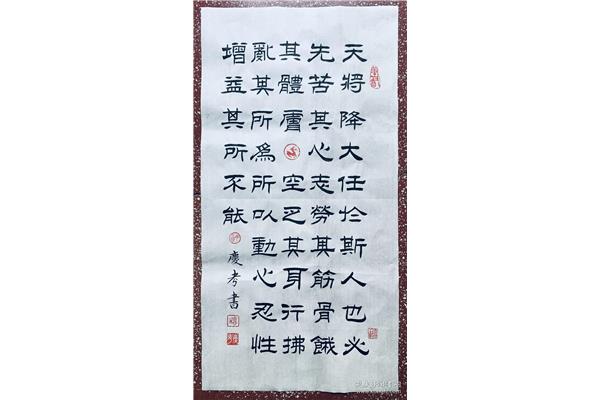 天將降大任於斯人也必
先苦其心志勞其筋骨餓
其體膚空乏其身行拂
亂其所為所以動心忍性
增益其所不能
慶考書